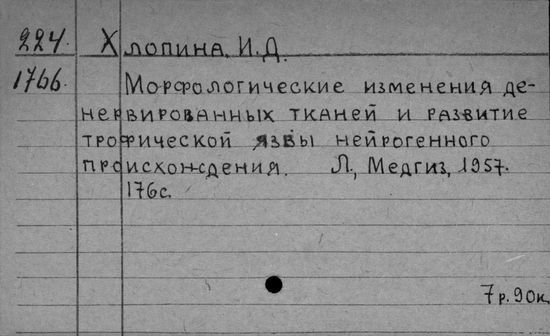 224. Хлопина, И.Д.
1766. Морфологические изменения де-
нервированных тканей и развитие
трофической язвы нейрогенного
происхождения. Л., Медгиз, 1957.
176с.
7р.90к.